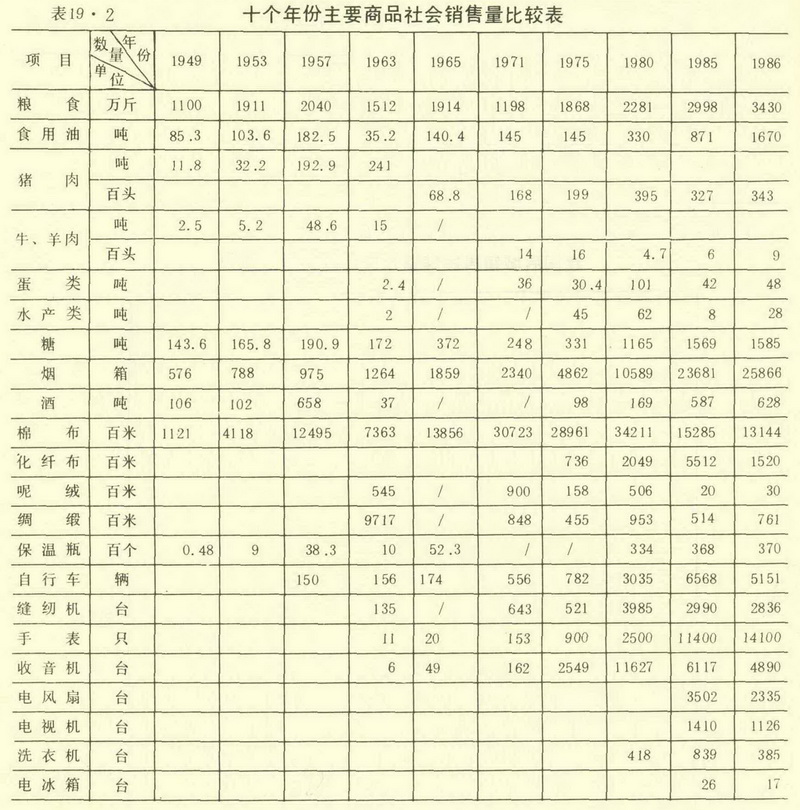 表19·2 十个年份主要商品社会销售量比较表
项目 数量 单位 年份 1949 1953 1957 1963 1965 1971 1975 1980 1985 1986
粮食 万斤 1100 1911 2040 1512 1914 1198 1868 2281 2998 3430
食用油 吨 85.3 103.6 182.5 35.2 140.4 145 145 330 871 1670
猪肉 吨 11.8 32.2 192.9 241
百头 68.8 168 199 395 327 343
牛、羊肉 吨 2.5 5.2 48.6 15 /
百头 14 16 4.7 6 9
蛋类 吨 2.4 / 36 30.4 101 42 48
水产类 吨 2 / / 45 62 8 28
糖 吨 143.6 165.8 190.9 172 372 248 331 1165 1569 1585
烟 箱 576 788 975 1264 1859 2340 4862 10589 23681 25866
酒 吨 106 102 658 37 / / 98 169 587 628
棉布 百米 1121 4118 12495 7363 13856 30723 28961 34211 15285 13144
化纤布 百米 736 2049 5512 1520
呢绒 百米 545 / 900 158 506 20 30
绸缎 百米 9717 / 848 455 953 514 761
保温瓶 百个 0.48 9 38.3 10 52.3 / / 334 368 370
自行车 辆 150 156 174 556 782 3035 6568 5151
缝纫机 台 135 / 643 521 3985 2990 2836
手表 只 11 20 153 900 2500 11400 14100
收音机 台 6 49 162 2549 11627 6117 4890
电风扇 台 3502 2335
电视机 台 1410 1126
洗衣机 台 418 839 385
电冰箱 台 26 17